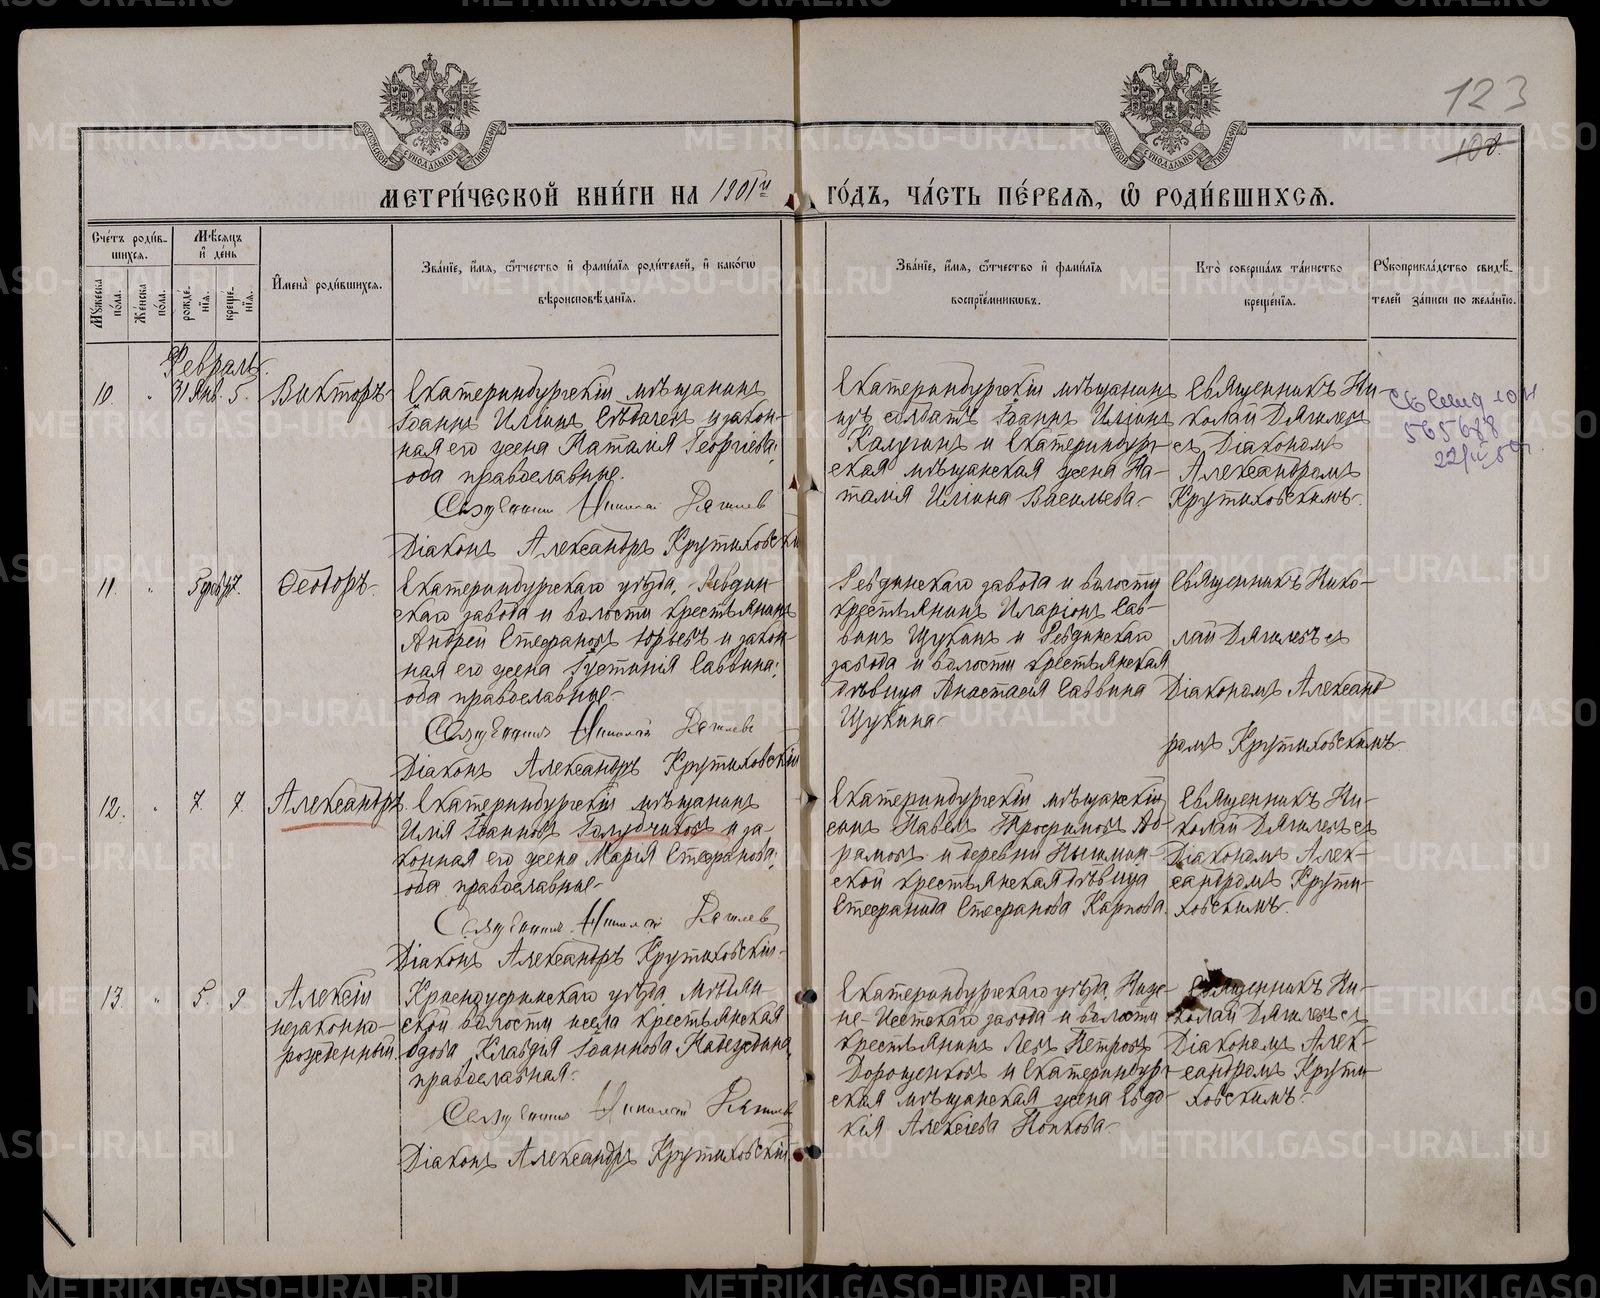 123
108.
МЕТРИ́ЧЕСКОЙ КНИ́ГИ НА 1901й ГО́ДЪ, ЧА́СТЬ ПЕ́РВАЯ, Ѽ РОДИ́ВШИХСЯ.
Сче́тъ роди́в-
шихся.
Му́жеска по́ла.
Же́нска по́ла.
Мѣ́сяцъ и де́нь
рожде́нїя.
креще́нїя.
И҆мена̀ роди́вшихся.
Зва́нїе, и҆́мя, ѻ҆́тчество и҆ фами́лїя роди́телей, и҆ како́гѡ
вѣроисповѣ́данїя.
Зва́нїе, и҆́мя, ѻ҆́тчество и҆ фами́лїя
воспрїе́мникѡвъ.
Кто̀ соверша́лъ та́инство
креще́нїя.
Рꙋкоприкла́дство свидѣ́-
телей за́писи по жела́нїю.
Февраль.
10. " 31 Янв. 5. Викторъ
Екатеринбургскій мѣщанинъ
Іоаннъ Иліинъ и закон-
ная его жена Наталия Георгіева;
оба православные.
Священникъ Николай Дягилев
Діаконъ Александръ Крутиховскій
Екатеринбургскій мѣщанинъ
изъ солдатъ Іоаннъ Иліинъ
Калугинъ и Екатеринбург-
ская мѣщанская жена На-
талія Иліина Васильева
Священникъ Ни-
колай Дягилевъ
съ Діакономъ
Александромъ
Крутиховскимъ
565688
11. " 5 февр. 7. Ѳеодоръ
Екатеринбургскаго уѣзда, Ревдин-
скаго завода и волости крестьянинъ
Андрей Стефановъ Юрьевъ и закон-
ная его жена Іустинія Саввина;
оба православные
Священникъ Николай Дягилевъ
Діаконъ Александръ Крутиховскій
Ревдинскаго завода и волости
крестьянинъ Иларіонъ Сав-
винъ Щукинъ и Ревдинскаго
завода и волости крестьянская
дѣвица Анастасія Саввина
Щукина
Священникъ Нико-
лай Дягилевъ съ
Діакономъ Александ-
ромъ Крутиховскимъ
12. " 7. 7 Александръ
Екатеринбургскій мѣщанинъ
Илія Іоанновъ Голубчиковъ и за-
конная его жена Марія Стефанова;
оба православные
Священникъ Николай Дягилев
Діаконъ Александръ Крутиховскій
Екатеринбургскій мѣщанскій
сынъ Павелъ Трофимовъ Аб-
рамовъ и деревни Пышмин-
ской крестьянская дѣвица
Стефанида Стефанова Карпова
Священникъ Ни-
колай Дягилевъ съ
Діакономъ Алек-
сандромъ Крути-
ховскимъ
13. " 5. 9 Алексій
незаконно-
рожденный
Красноуфимскаго уѣзда,
ской волости и села крестьянская
вдова Клавдія Іоаннова Надеждина,
православная
Священникъ Николай Дягилев
Діаконъ Александръ Крутиховскій
Екатеринбургскаго уѣзда, Ниж-
не-Исетскаго завода и волости
крестьянинъ Левъ Петровъ
Дорощенковъ и Екатеринбург-
ская мѣщанская жена Евдо-
кія Алексіева Попкова
Священникъ Ни-
колай Дягилевъ съ
Діакономъ Алек-
сандромъ Крути-
ховскимъ
METRIKI.GASO-URAL.RU